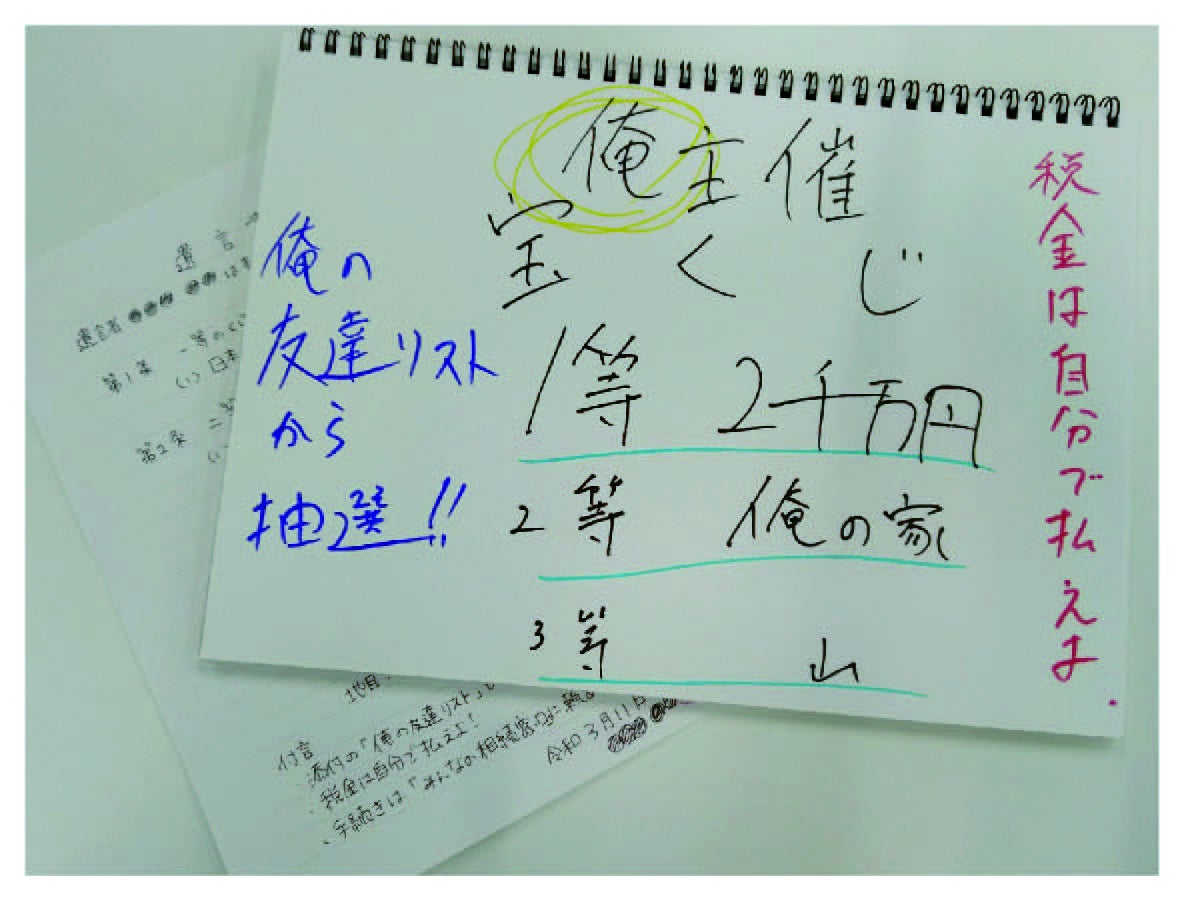 俺主催
宝くじ
1等 2千万円
2等 俺の家
3等 山
俺の
友達リスト
から
抽選!!
税金は自分で払えよ.
遺言
遺言者
第1条 一等のくじ
(1) 日本
第2条 二等
(1)
地目
付言
・添付の「俺の友達リスト」
・税金は自分で払えよ!
・手続きは「みんなの相続窓口」に頼
令和3月11日